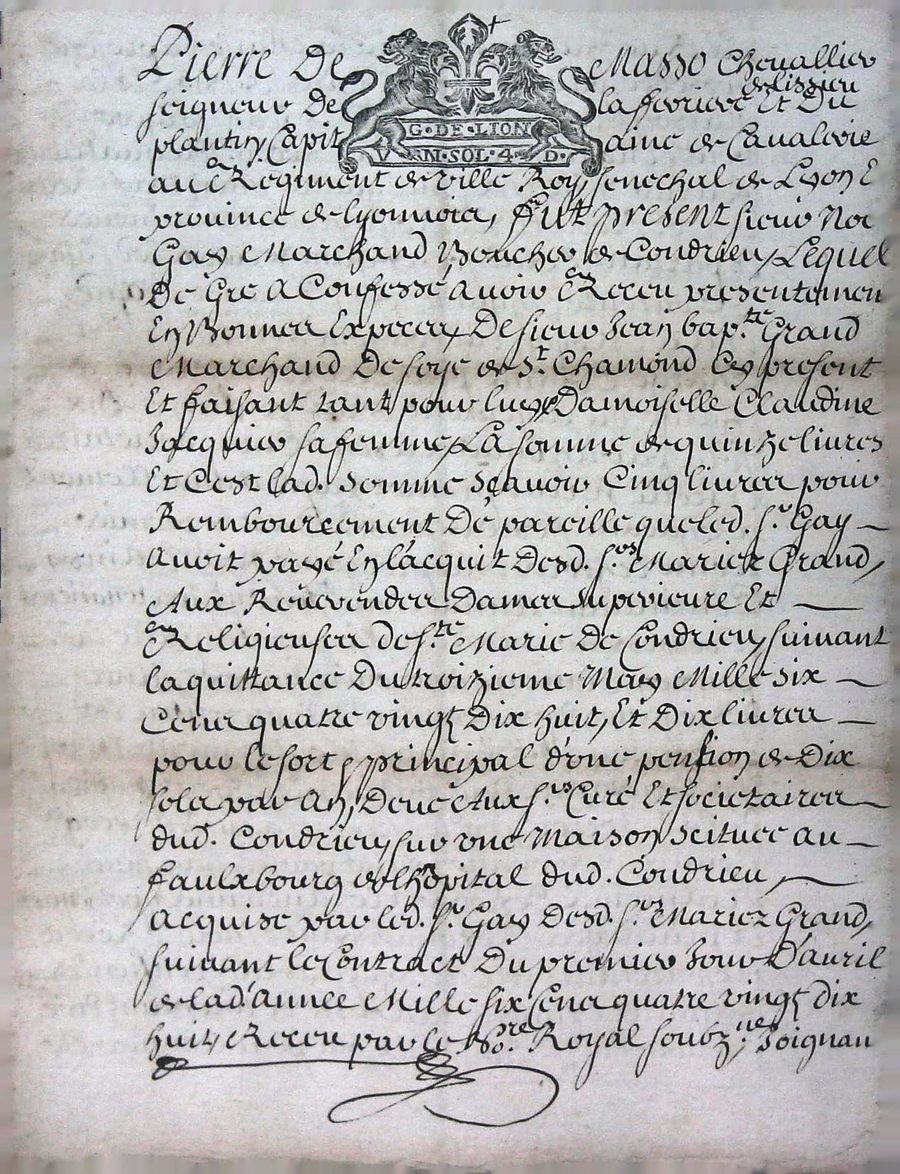 Pierre De Masso Chevallier
seigneur de la ferriere de lissieu Et Du
plantin Capitaine de Cavalerie
G·DE·LION
V·N·SOL·4·D·
au Regiment de ville Roy, senechal de Lyon E
province de lyonnois, fut present sieur Noe
Gay Marchand Boucher de Condrieu, Lequel
De Gre A Confessé avoir Receu presentemen
En Bonnes Especes, De sieur Jean bap.te Grand
Marchand De soye de St. Chamond Cy present
Et faisant tant pour luy, Damoiselle Claudine
Jacquier sa femme, La somme de quinze livres
Et C'est lad. somme scavoir Cinq livres pour
Rembourcement De pareille que led. sr. Gay
Avoit payé En l'acquit Desd. srs Mariez Grand,
Aux Reverendes Dames superieure Et
Religieuses de Ste Marie De Condrieu, suivant
la quittance Du troizieme May Mille six
Cens quatre vingt Dix huit, Et Dix livres
pour le sort principal d'une pension de Dix
sols par An, Deue Aux srs Curé Et societaires
dud. Condrieu, sur une Maison scituee au
faulxbourg de l'hôpital dud. Condrieu,
acquise par led. sr. Gay Desd. srs Mariez Grand,
suivant le Contract Du premier Jour D'avril
de lad. année Mille six Cens quatre vingt dix
huit, Receu par le No.re Royal soubz.né Joignan